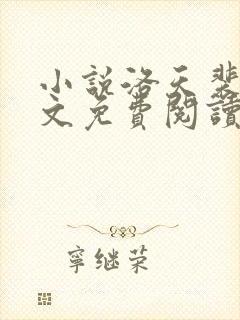 小說洛天斐
文免費閱讀
寧继荣